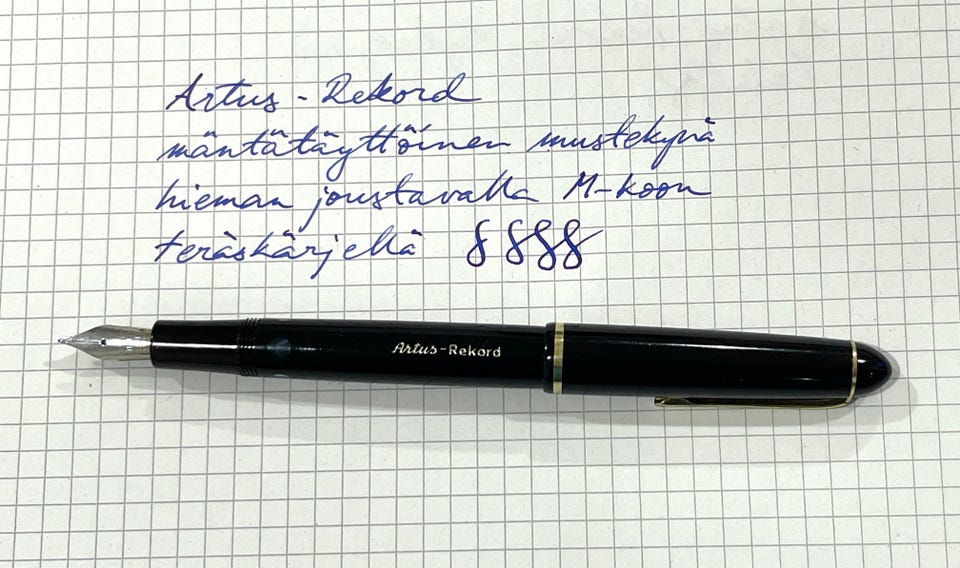 Artus - Rekord
mäntätäyttöinen mustekynä
hieman joustavalla M-koon
teräskärjellä 8 8 8 8
Artus-Rekord